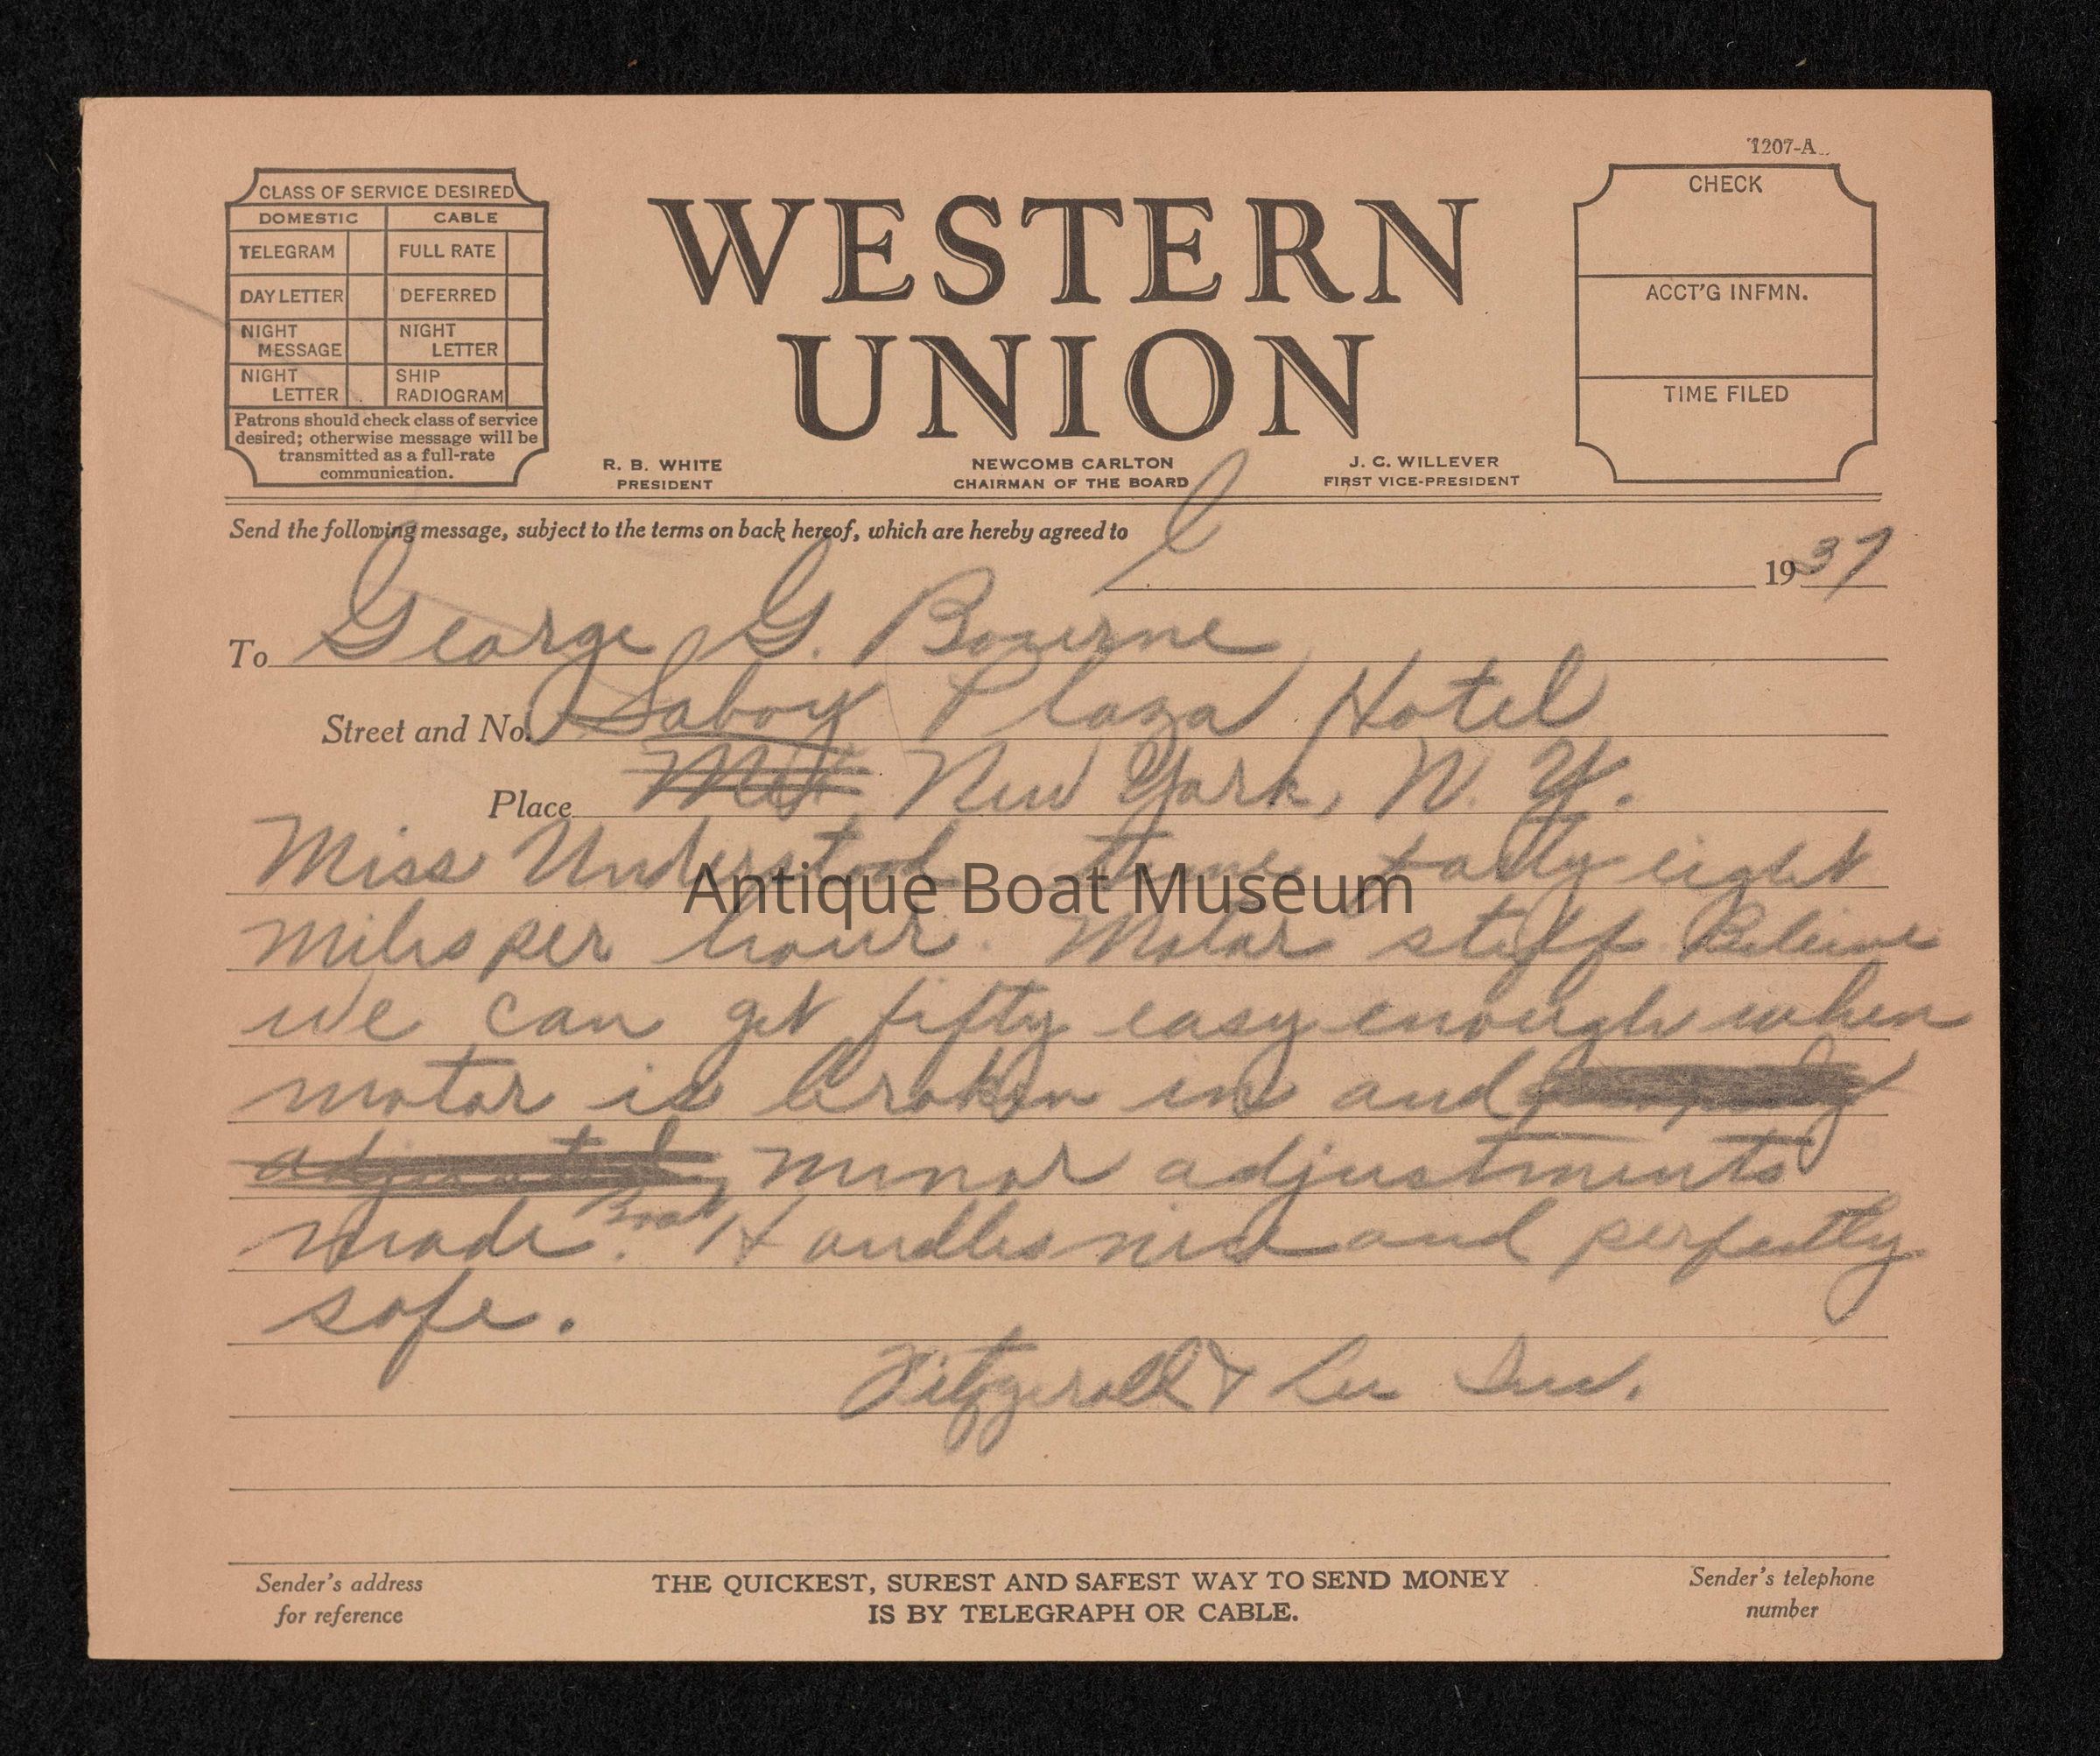 1207-A
CLASS OF SERVICE DESIRED
DOMESTIC CABLE
TELEGRAM FULL RATE
DAY LETTER DEFERRED
NIGHT MESSAGE NIGHT LETTER
NIGHT LETTER SHIP RADIOGRAM
Patrons should check class of service
desired; otherwise message will be
transmitted as a full-rate
communication.
WESTERN
UNION
R. B. WHITE
PRESIDENT
NEWCOMB CARLTON
CHAIRMAN OF THE BOARD
J. C. WILLEVER
FIRST VICE-PRESIDENT
CHECK
ACCT'G INFMN.
TIME FILED
Send the following message, subject to the terms on back hereof, which are hereby agreed to
1937
To George G. Bourne
Street and No. Savoy Plaza Hotel
Place New York, N. Y.
Miss Understood forty eight
Antique Boat Museum
miles per hour. Motor stiff Believe
we can get fifty easy enough when
motor is broken in and
adjusted minor adjustments
made. Boat Handles nice and perfectly
safe.
Fitzgerald & Lee Inc.
Sender's address
for reference
THE QUICKEST, SUREST AND SAFEST WAY TO SEND MONEY
IS BY TELEGRAPH OR CABLE.
Sender's telephone
number